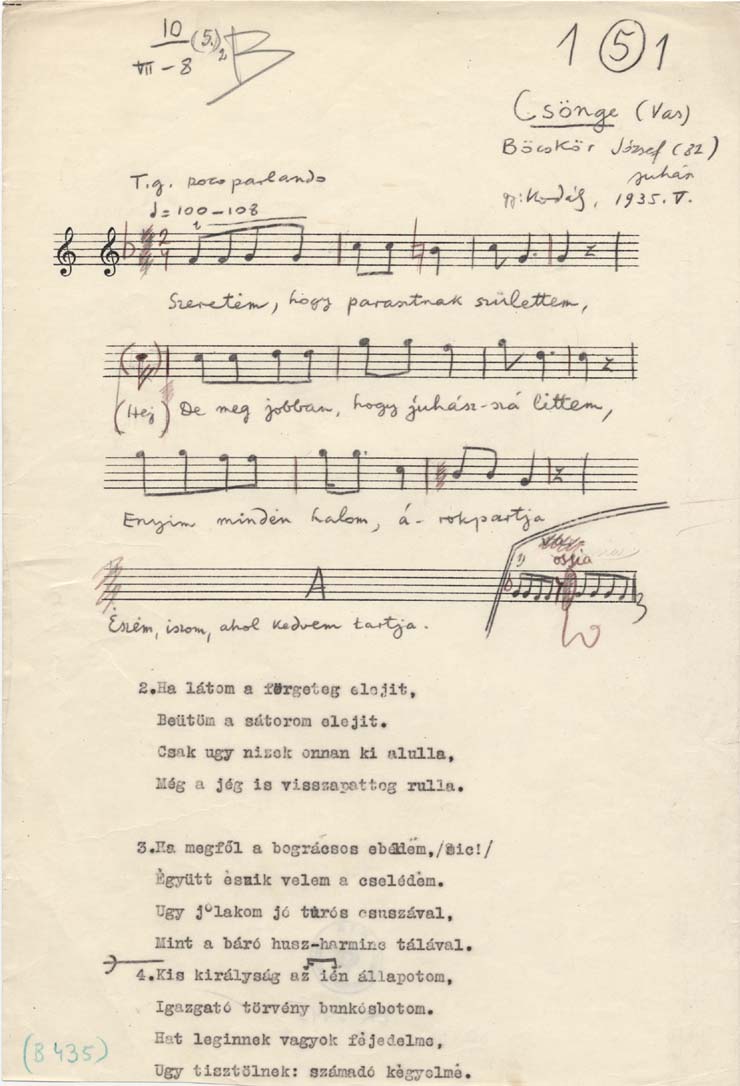 10 (5.) 2 B
VII - 8
1 5 1
Csönge (Vas)
Böcskör József (32)
juhász
gy: Kodály, 1935. V.
T.g. poco parlando
♩ = 100 - 108
Szeretėm, hogy parasztnak születtem,
(Hej) De még jobban, hogy juhász-szá littem,
Enyim mindėn halom, á-rokpartja
A
ossia
Ėszėm, iszom, ahol kedvem tartja.
2.Ha látom a förgeteg elejit,
Beütöm a sátorom elejit.
Csak ugy nizek onnan ki alulla,
Még a jég is visszapattog rulla.
3.Ha megfől a bográcsos ebédėm,/sic!/
Ėgyütt ėszik velem a cselédėm.
Ugy jólakom jó túrós csuszával,
Mint a báró husz-harminc tálával.
4.Kis királyság az ién állapotom,
Igazgató törvény bunkósbotom.
Hat leginnek vagyok féjedelme,
Ugy tisztölnek: számadó kėgyelmė.
(B 435)